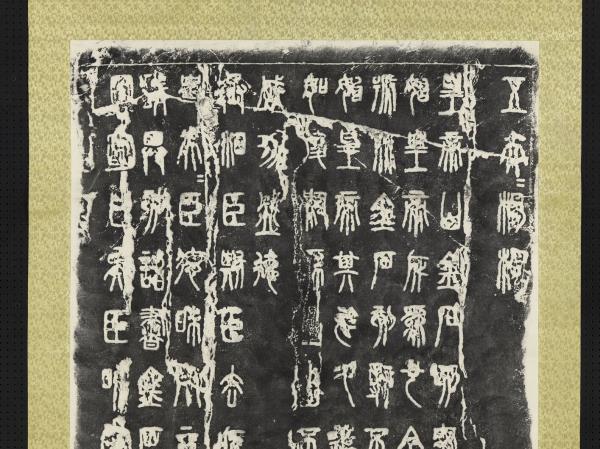 五夫=楊樛
皇帝曰金石刻盡
始皇帝所為也今
號而金石刻辭不
始皇帝其於久遠
如後嗣為之者不
成功盛德
丞相臣斯臣去疾
史夫=臣德昧死言
請具刻詔書金石
因明白矣臣昧死